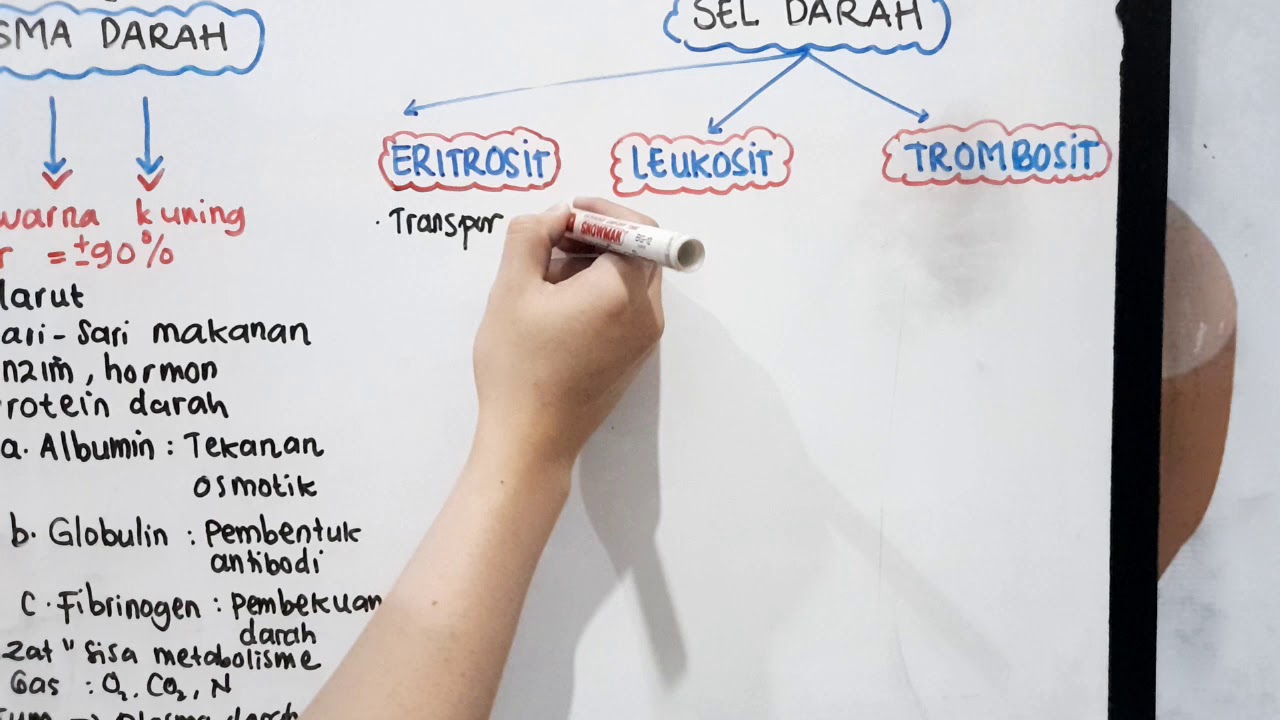 SMA DARAH
warna kuning
r = ±90%
larut
ari-Sari makanan
nzim, hormon
rotein darah
a. Albumin : Tekanan
osmotik
b. Globulin : pembentuk
antibodi
c. Fibrinogen : pembekuan
darah
Zat" sisa metabolisme
Gas : O₂, CO₂, N
SEL DARAH
ERITROSIT
LEUKOSIT
TROMBOSIT
· Transpor
SNOWMAN